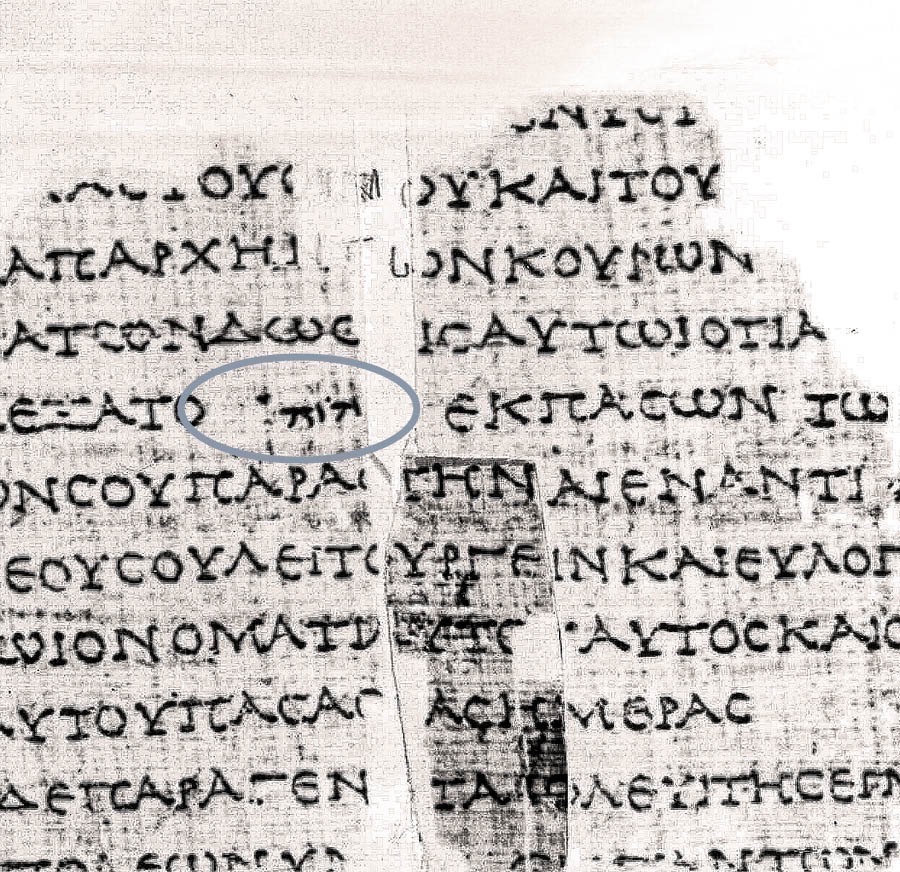 ΟΥ ΟΥΚΑΙΤΟΥ
ΑΠΑΡΧΗ ΩΝΚΟΥΡΩΝ
ΑΤΩΝΔΩϹΕ ΙϹΑΥΤΩΙΟΤΙΑ
ΕΞΑΤΟ יהוה ΕΚΠΑϹΩΝ ΤΩ
ΩΝϹΟΥΠΑΡΑϹ ΤΗΝΑΙΕΝΑΝΤΙ
ΕΟΥϹΟΥΛΕΙΤΟΥΡΓΕΙΝΚΑΙΕΥΛΟΓ
ΩΙΟΝΟΜΑΤΙ ΑΥΤΟ ΑΥΤΟϹΚΑΙΟ
ΑΥΤΟΥΠΑϹΑϹΤ ΑϹΗΜΕΡΑϹ
ΔΕΠΑΡΑΓΕΝ ΤΑΙΟΛΕΥΙΤΗϹΕΓΜ